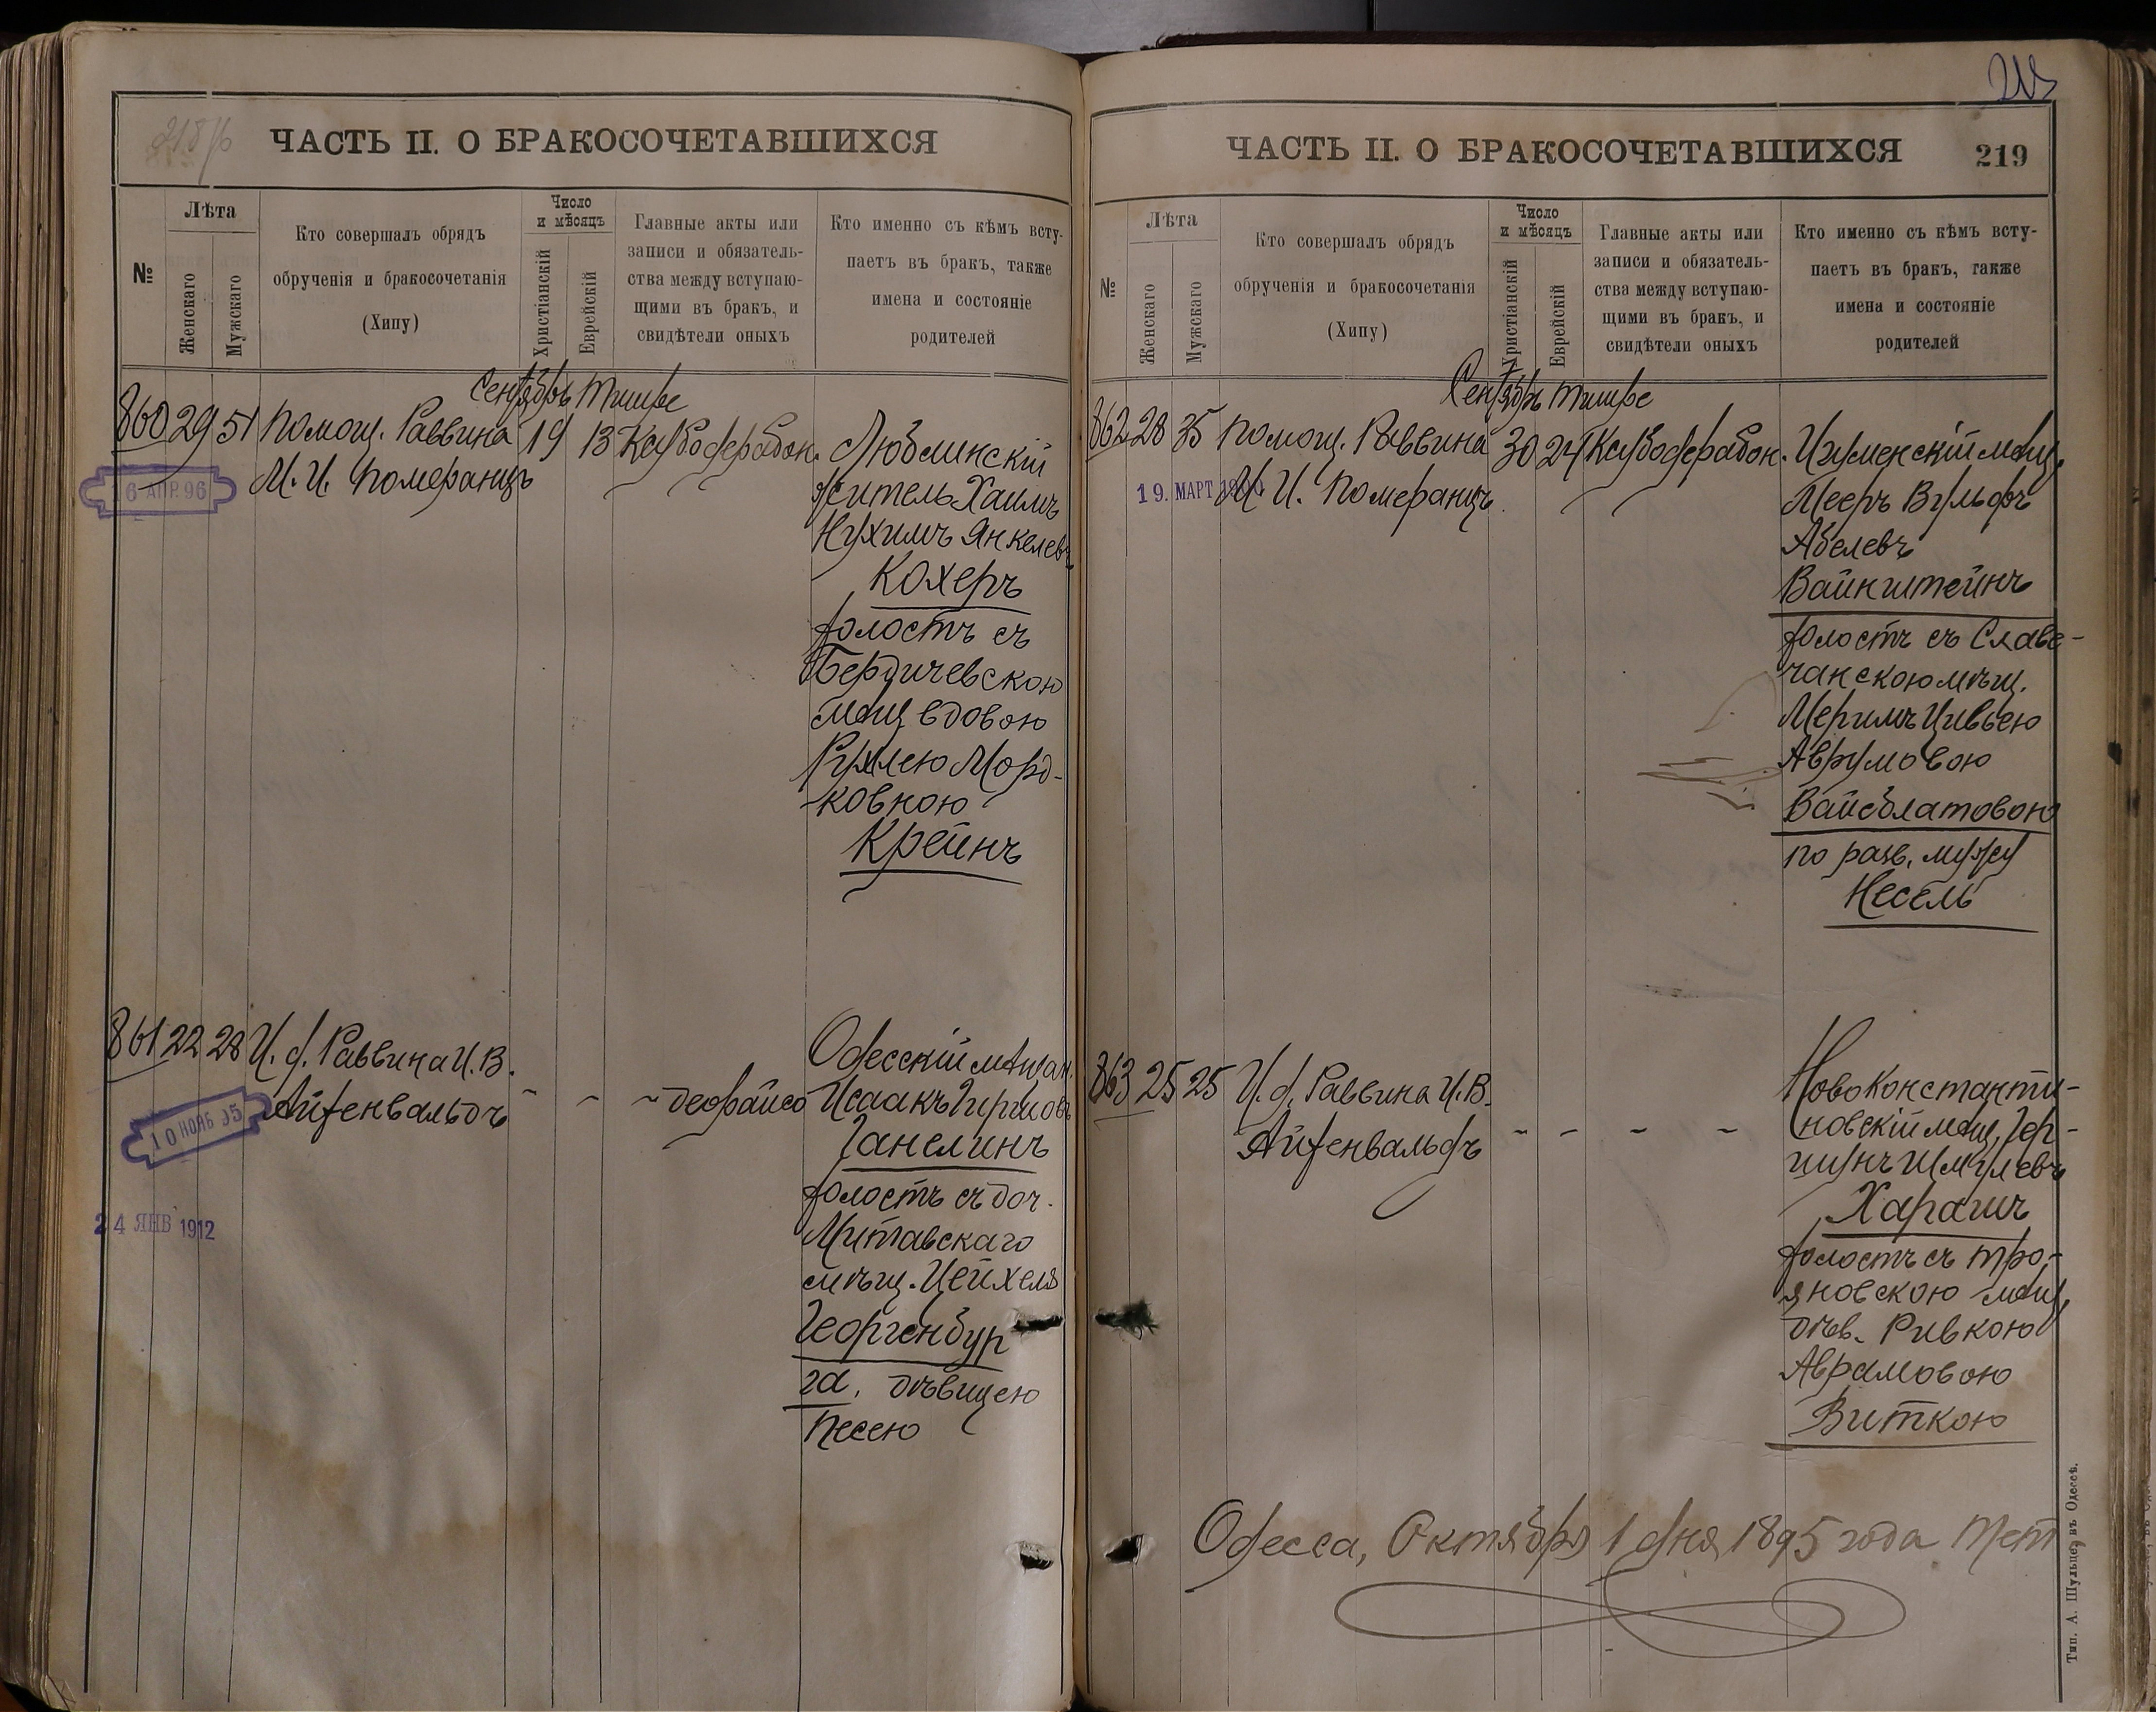 ЧАСТЬ II. О БРАКОСОЧЕТАВШИХСЯ
№
Лѣта
Женскаго
Мужскаго
Кто совершалъ обрядъ
обрученія и бракосочетанія
(Хипу)
Число
и мѣсяцъ
Христіанскій
Еврейскій
Главные акты или
записи и обязатель-
ства между вступаю-
щими въ бракъ, и
свидѣтели оныхъ
Кто именно съ кѣмъ всту-
паетъ въ бракъ, также
имена и состояніе
родителей
Сентябрь Тишре
860 29 51 Помощ. Раввина 19 13
М. И. Померанцъ
16 АПР. 96
Люблинскій
житель Хаимъ
Нухимъ Янкелевъ
Кохеръ
холостъ съ
Бердичевскою
мѣщ. вдовою
Рухлею Морд-
ковною
Крейнъ
861 22 28 И. д. Раввина И. В.
Айзенвальдъ
10 НОЯБ 95
24 ЯНВ 1912
Одесскій мѣщан.
Исаакъ
Ганелинъ
холостъ съ доч.
Митавскаго
мѣщ. Цейхеля
Георгенбур
га, дѣвицею
Песею
ЧАСТЬ II. О БРАКОСОЧЕТАВШИХСЯ
219
№
Лѣта
Женскаго
Мужскаго
Кто совершалъ обрядъ
обрученія и бракосочетанія
(Хипу)
Число
и мѣсяцъ
Христіанскій
Еврейскій
Главные акты или
записи и обязатель-
ства между вступаю-
щими въ бракъ, и
свидѣтели оныхъ
Кто именно съ кѣмъ всту-
паетъ въ бракъ, также
имена и состояніе
родителей
Сентябрь Тишре
862 28 35 Помощ. Раввина 30 24
М. И. Померанцъ
19. МАРТ
Игуменскій мѣщ.
Мееръ Вульфъ
Абелевъ
Вайнштейнъ
холостъ съ Славе-
чанскою мѣщ.
Меримъ Цивьею
Аврумовою
Вайсблатовою
по разв. мужу
Несель
863 25 25 И. д. Раввина И. В.
Айзенвальдъ
Новоконстанти-
новскій мѣщ. Гер-
шунъ Шмулевъ
Харагичъ
холостъ съ Тро-
яновскою мѣщ.
дѣв. Ривкою
Аврамовою
Виткою
Одесса, Октября 1 дня 1895 года
Тип. А. Шульце, въ Одессѣ.